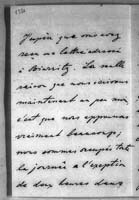 J'espère que vous avez
reçu ma lettre adressée
à Biarritz. La seule
raison que nous écrivons
maintenant un peu moins
c'est que nous apprenons
vraiment beaucoup;
nous sommes occupées toute
la journée à l'exception
de deux heures dans